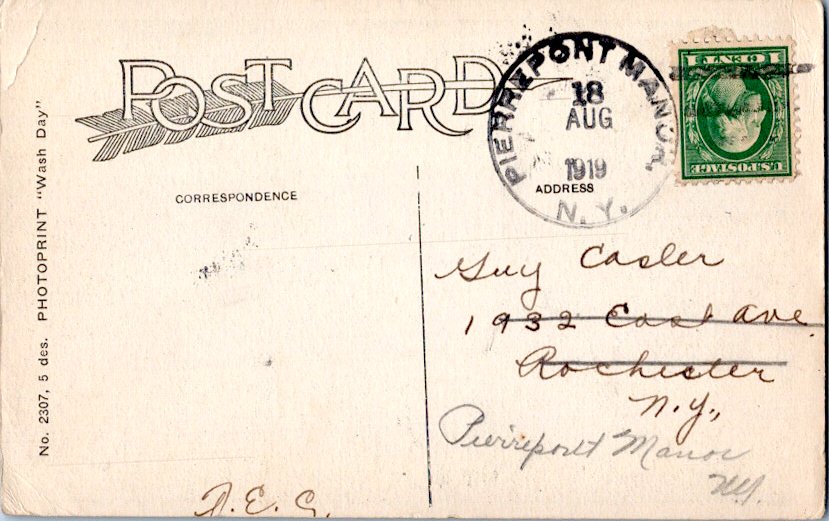 POST CARD
CORRESPONDENCE
ADDRESS
PIERREPONT MANOR,
18
AUG
1919
N. Y.
1 CENT 1
U.S. POSTAGE
Guy Casler
1932 East Ave
Rochester
N.Y.,
Pierrepont Manor
NY.
No. 2307, 5 des. PHOTOPRINT "Wash Day"